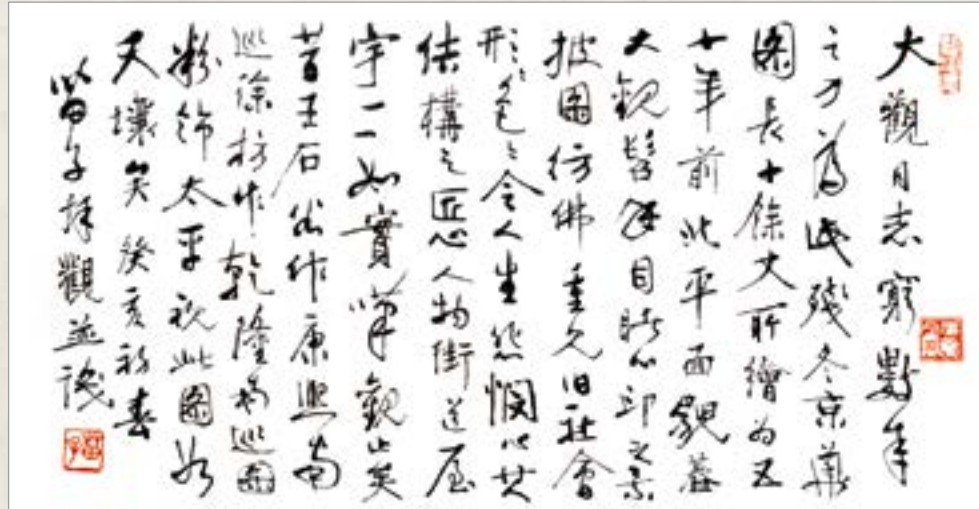 大觀日志窮數年
之力為民殘冬京華
圖長十餘丈所繪為五
十年前北平面貌蓋
大觀髫年目睹心印之景
披圖仿佛重見旧社會
形形色色令人生悲憫以其
結構之匠心人物街道屋
宇一一如實嘆觀止矣
昔王石谷作康熙南
巡徐揚作乾隆南巡圖
粉飾太平視此圖若
天壤矣癸亥初春
苗子拜觀並識